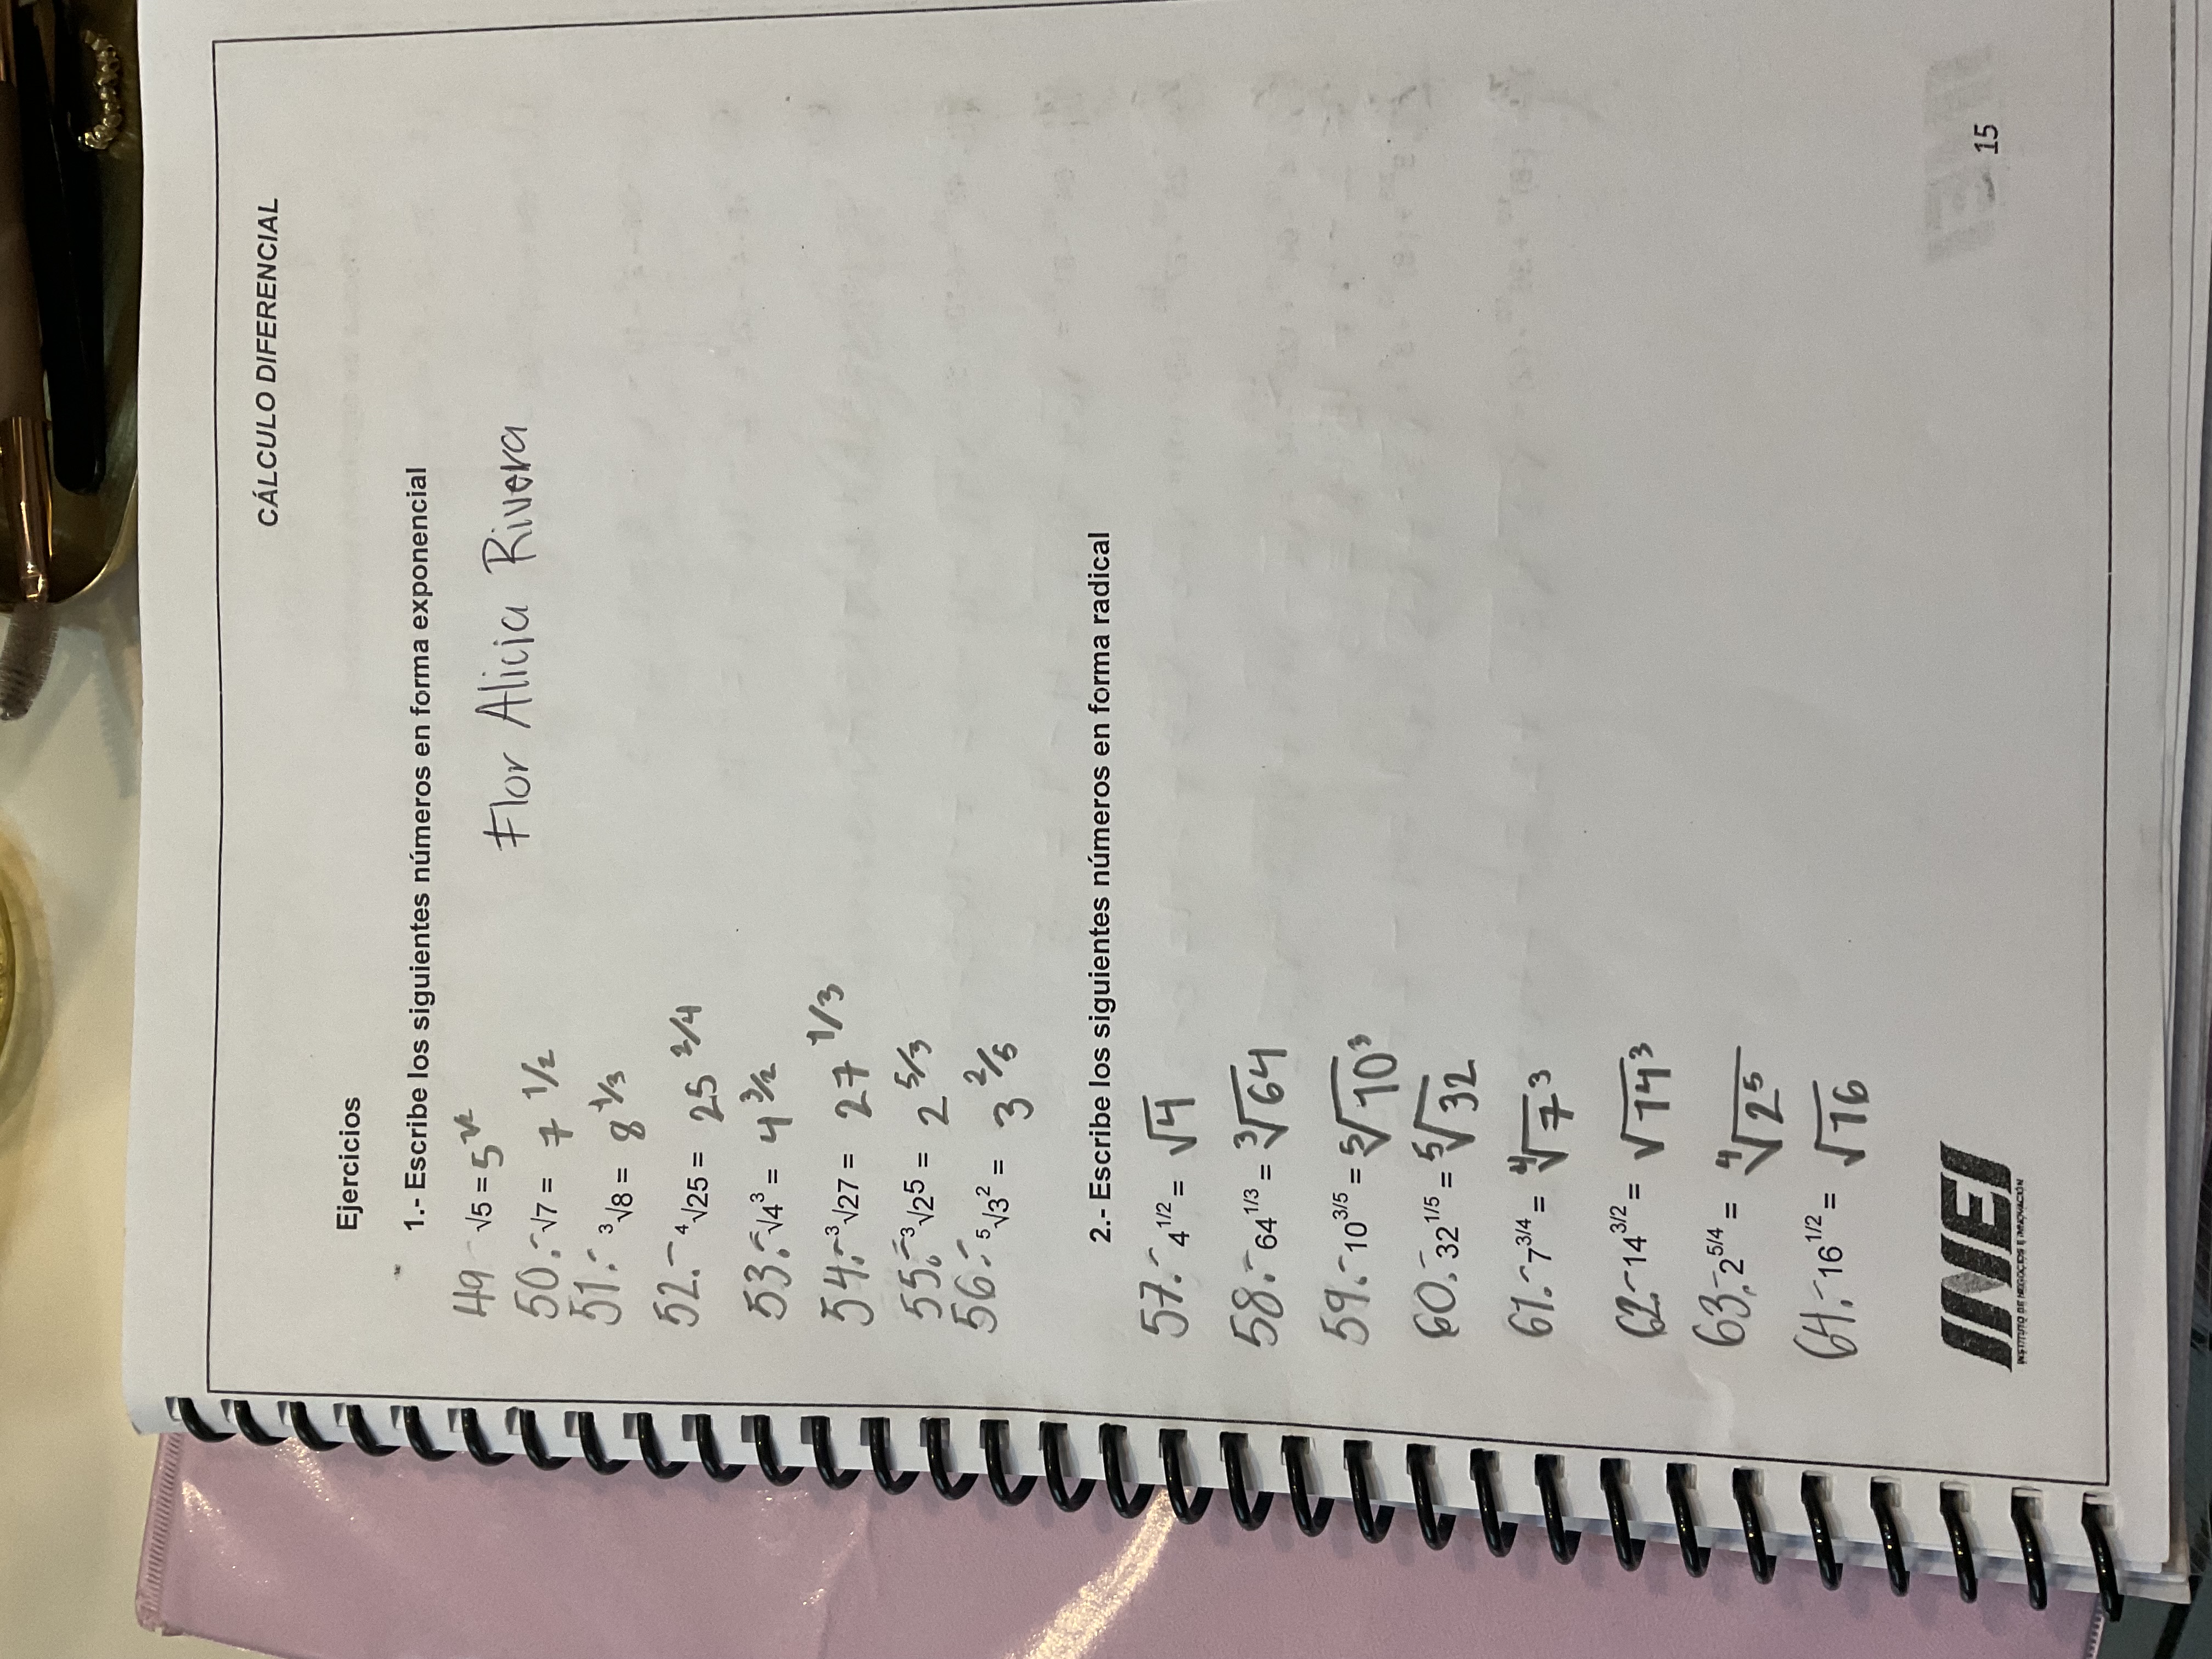 CÁLCULO DIFERENCIAL
Ejercicios
1.- Escribe los siguientes números en forma exponencial
Flor Alicia Rivera
49- √5 = 5^1/2
50.- √7 = 7^1/2
51.- ³√8 = 8^1/3
52.- ⁴√25 = 25^2/4
53.- √4³ = 4^3/2
54.- ³√27 = 27^1/3
55.- ³√2⁵ = 2^5/3
56.- ⁵√3² = 3^2/5
2.- Escribe los siguientes números en forma radical
57.- 4^1/2 = √4
58.- 64^1/3 = ³√64
59.- 10^3/5 = ⁵√10³
60.- 32^1/5 = ⁵√32
61.- 7^3/4 = ⁴√7³
62.- 14^3/2 = √14³
63.- 2^5/4 = ⁴√2⁵
64.- 16^1/2 = √16
INEI
INSTITUTO DE NEGOCIOS E INNOVACIÓN
15